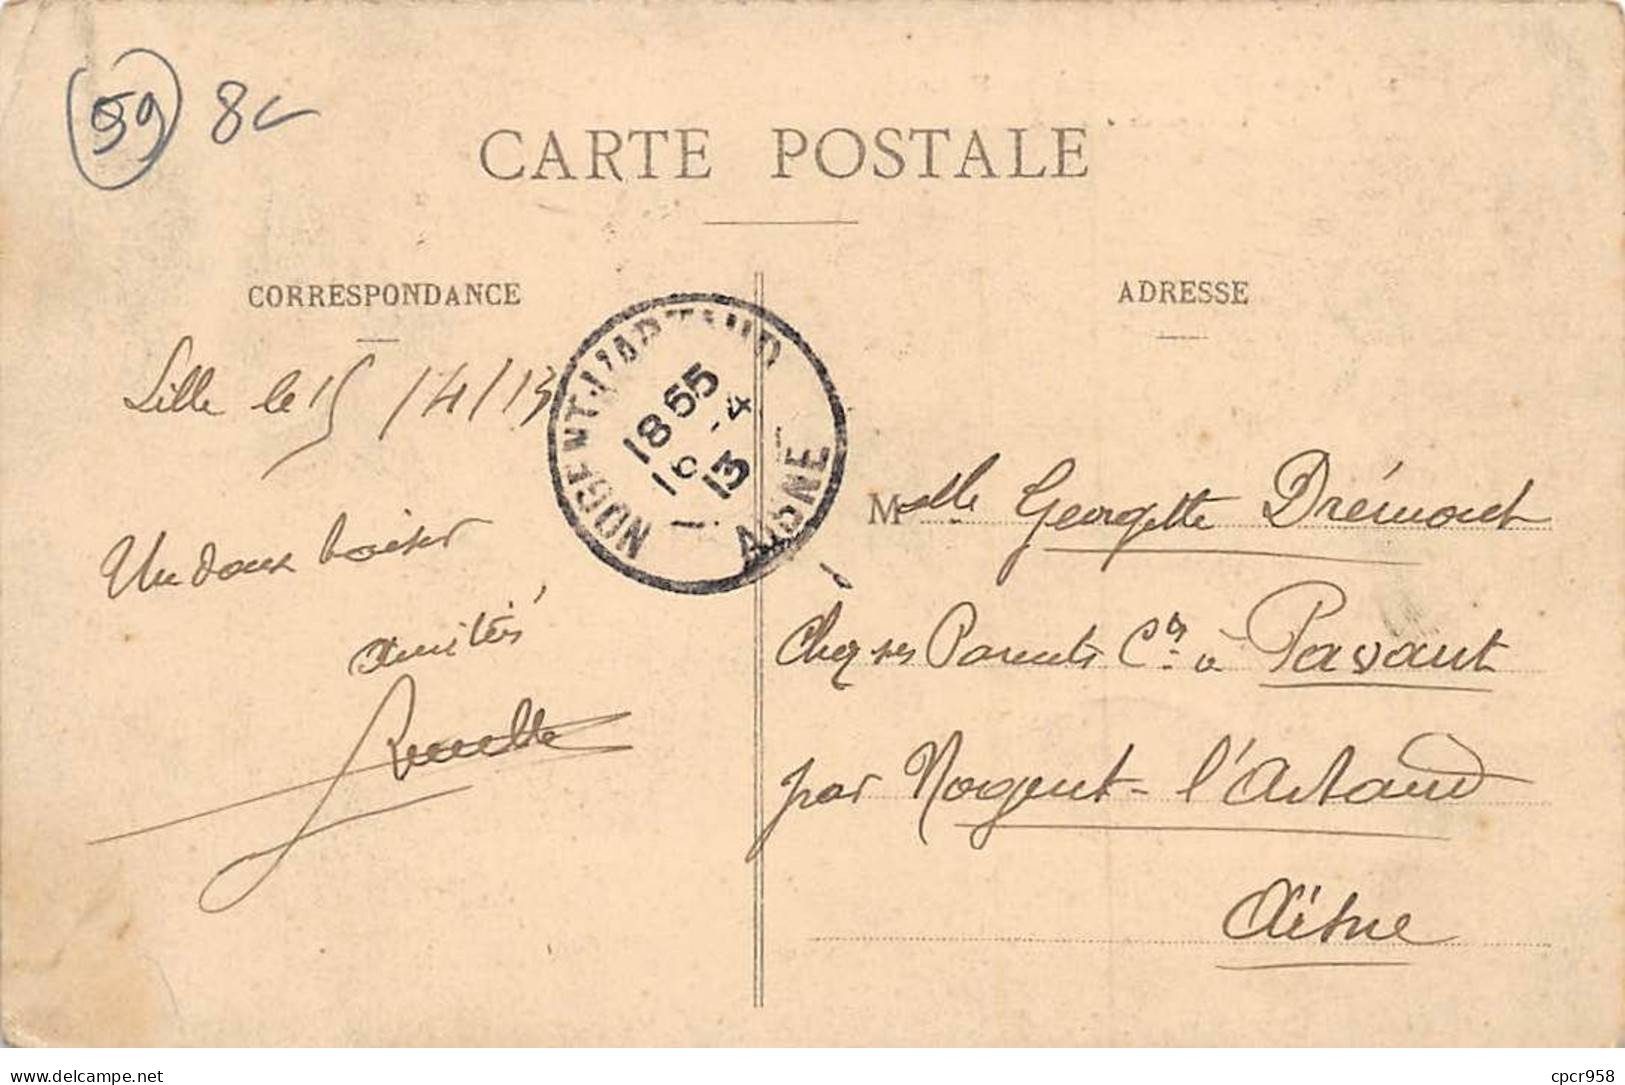 (59) 8
CARTE POSTALE
CORRESPONDANCE
ADRESSE
Lille le 15/4/13
Un doux baiser
amitiés
NOGENT-L'ARTAUD
18 55
16 -4
13
AISNE
Melle Georgette Drémont
Chez ses Parents Crs à Pavant
par Nogent-l'Artaud
Aisne
Delcampe.net
cpcr958